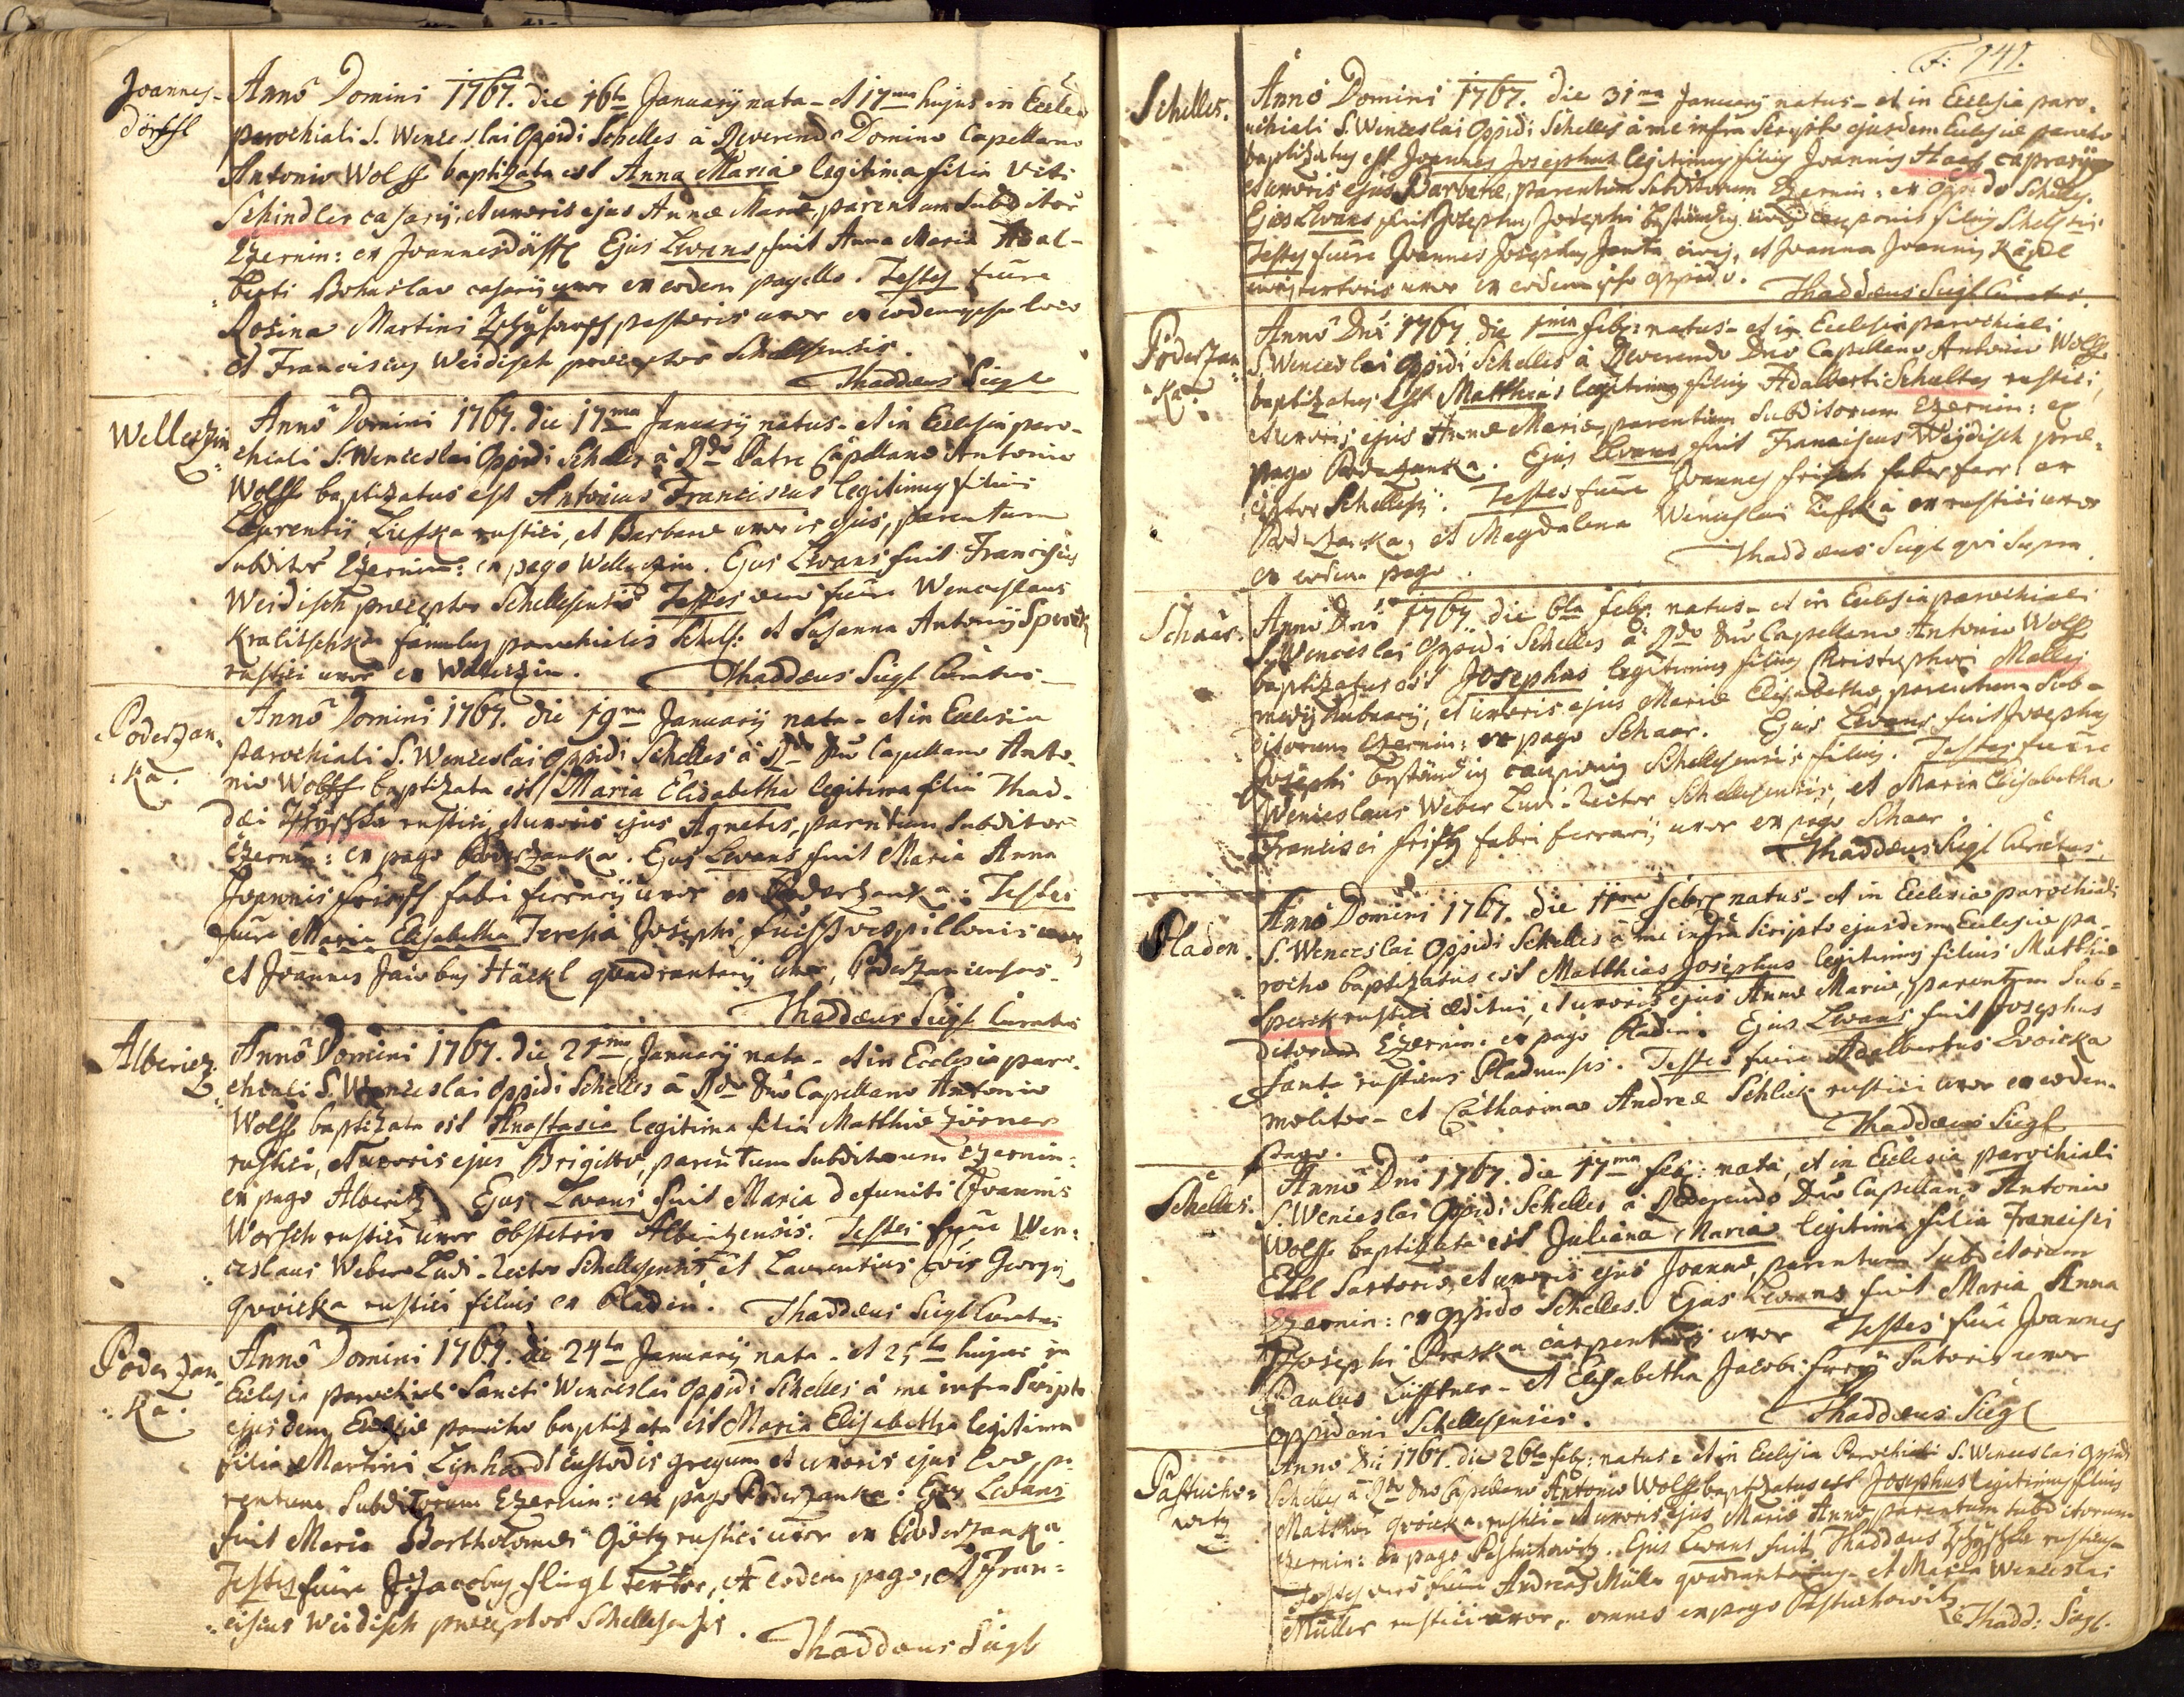 Joannes-
dörffl
Anno Domini 1767. die 16ta Januarij nata - et 17ma hujus in Eccle-
parochiali S. Wenceslai Oppidi Schelles à Reverendo Domino Capellano
Antonio Wolff baptizata est Anna Maria legitima filia Viti
Schindler casarij, et uxoris ejus Annæ Mariæ, parentum Subditor
Czernin: ex Joannesdörffl Ejus Levans fuit Anna Maria Adal-
berti Bohuslav casarij uxor ex eodem pagello. Testes fuere
Rosina Martini pastoris uxor ex eodem loco
et Franciscus Weidisch præceptor Schellesensis.
Thaddæus Siegl
Welletzin
Anno Domini 1767. die 17ma Januarij natus - et in Ecclesia paro-
chiali S. Wenceslai Oppidi Schelles à Rdo Patre Capellano Antonio
Wolff baptizatus est Antonius Franciscus legitimus filius
Laurentij Liefka rustici, et Barbaræ uxoris ejus, parentum
Subditor Czernin: ex pago Welletzin. Ejus Levans fuit Franciscus
Weidisch præceptor Schellesensis Testes vero fuere Wenceslaus
Kralitschka famulus parochialis Schels: et Susanna Antonij Sperk
rustici uxor ex Welletzin. Thaddæus Siegl Curatus
Poderzan-
ka.
Anno Domini 1767. die 19na Januarij nata - et in Ecclesia
parochiali S. Wenceslai Oppidi Schelles à Rdo Dno Capellano Anto-
nio Wolff baptizata est Maria Elisabetha legitima filia Thad-
dæi rustici, et uxoris ejus Agnetis, parentum Subditor
Czernin: ex pago Poderzanka. Ejus Levans fuit Maria Anna
Joannis Frisch fabri ferrarij uxor ex Poderzanka: Testes
fuere Maria Elisabetha Teresia Josephi vespillonis uxor
et Joannes Jacobus Häckl quadrantarij Poderzancensis.
Thaddæus Siegl Curatus
Alberitz
Anno Domini 1767. die 21ma Januarij nata - et in Ecclesia paro-
chiali S. Wenceslai Oppidi Schelles à Rdo Dno Capellano Antonio
Wolff baptizata est Anastasia legitima filia Matthiæ Zörner
rustici, et uxoris ejus Brigittæ, parentum Subditorum Czernin:
ex pago Alberitz Ejus Levans fuit Maria defuncti Joannis
Worsch rustici uxor obstetrix Alberitzensis. Testes fuere Wen-
ceslaus Weber Ludi-Rector Schellesensis et Laurentius Georgij
Qvoicka rustici filius ex Pladin. Thaddæus Siegl Curatus
Poderzan-
ka.
Anno Domini 1767. die 24ta Januarij nata - et 25ta hujus in
Eclesia parochiali Sancti Wenceslai Oppidi Schelles à me infra Scripto
ejusdem Ecclesiæ parocho baptizata est Maria Elisabetha legitima
filia Martini Linhard custodis gregum et uxoris ejus Evæ, pa-
rentum Subditorum Czernin: ex pago Poderzanka. Ejus Levans
fuit Maria Bartholomæi Götz rustici uxor ex Poderzanka
Testes fuere Jacobus Fliegl textor, ex eodem pago, et Fran-
ciscus Weidisch præceptor Schellesensis.
Thaddæus Siegl
F: 141.
Schelles.
Anno Domini 1767. die 31ma Januarij natus - et in Ecclesia paro-
chiali S. Wenceslai Oppidi Schelles à me infra Scripto ejusdem Ecclesiæ parocho
baptizatus est Joannes Josephus legitimus filius Joannis Haas caprarij
et uxoris ejus Barbaræ, parentum Subditorum Czernin: ex Oppido Schelles.
Ejus Levans fuit Josephus, Josephi Beständig cauponis filius
Testes fuere Joannes Josephus Janta civis, et Joanna Joannis
textoris uxor ex eodem ipso oppido. Thaddæus Siegl Curatus.
Poderzan-
ka.
Anno Dni 1767 die 1ma feb: natus - et in Ecclesia parochiali
S. Wenceslai Oppidi Schelles à Reverendo Dno Capellano Antonio Wolff
baptizatus est Matthias legitimus filius Adalberti Schultes rustici,
et uxoris ejus Annæ Mariæ, parentum Subditorum Czernin: ex
pago Poderzanka. Ejus Levans fuit Franciscus Weidisch præ-
ceptor Schelles: Testes fuere Joannes Frisch faber ferr: ex
Poderzanka, et Magdalena Wenceslai rustici uxor
ex eodem pago. Thaddæus Siegl qui Supra.
Schaar.
Anno Dni 1767 die 6ta feb: natus - et in Ecclesia parochiali
S. Wenceslai Oppidi Schelles à Rdo Dno Capellano Antonio Wolff
baptizatus est Josephus legitimus filius Christophori Malles
et uxoris ejus Mariæ Elisabethæ, parentum Sub-
ditorum Czernin: ex pago Schaar. Ejus Levans fuit Josephus
Josephi Beständig cauponis Schellesensis filius. Testes fuere
Wenceslaus Weber Ludi-Rector Schellesensis, et Maria Elisabetha
Francisci fabri ferrarij uxor ex pago Schaar.
Thaddæus Siegl Curatus.
Pladen.
Anno Domini 1767. die 11ma febr natus - et in Ecclesia parochiali
S. Wenceslai Oppidi Schelles à me infra Scripto ejusdem Ecclesiæ pa-
rocho baptizatus est Matthias Josephus legitimus filius Matthiæ
Sperk rustici æditui, et uxoris ejus Annæ Mariæ, parentum Sub-
ditorum Czernin: ex pago Pladin. Ejus Levans fuit Josephus
Janta rusticus Pladnensis. Testes fuere Adalbertus Qvoicka
molitor - et Catharina Andreæ Schlick rustici uxor ex eodem
pago. Thaddæus Siegl
Schelles.
Anno Dni 1767. die 17ma feb: nata, et in Ecclesia parochiali
S. Wenceslai Oppidi Schelles à Reverendo Dno Capellano Antonio
Wolff baptizata est Juliana Maria legitima filia Francisci
Ettl Sartoris, et uxoris ejus Joannæ, parentum Subditorum
Czernin: ex oppido Schelles. Ejus Levans fuit Maria Anna
Josephi Praska carpentarij uxor Testes fuere Joannes
Paulus Lüfftner - et Elisabetha Jacobi Sutoris uxor
oppidani Schellesenses. Thaddæus Siegl
Pastucho-
witz
Anno Dni 1767. die 26ta feb: natus - et in Ecclesia Parochiali S. Wenceslai Oppidi
Schelles à Rdo Dno Capellano Antonio Wolff baptizatus est Josephus legitimus filius
Matthæi Qvoicka rustici - et uxoris ejus Mariæ Annæ parentum Subditorum
Czernin: ex pago Pastuchowitz. Ejus Levans fuit Thaddæus rusticus
Testes vero fuere Andreas Müller quadrantarius - et Maria Wenceslai
Müller rustici uxor, omnes ex pago Pastuchowitz Thadd: Siegl.